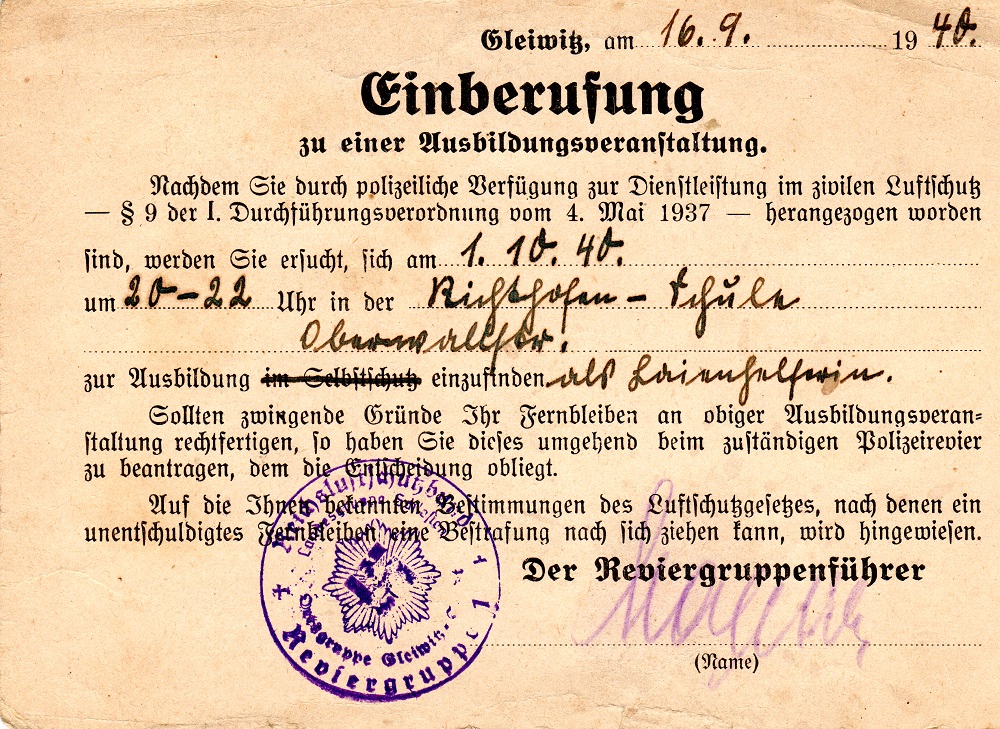 Gleiwitz, am 16. 9. 1940.
Einberufung
zu einer Ausbildungsveranstaltung.
Nachdem Sie durch polizeiliche Verfügung zur Dienstleistung im zivilen Luftschutz
— § 9 der I. Durchführungsverordnung vom 4. Mai 1937 — herangezogen worden
sind, werden Sie ersucht, sich am 1. 10. 40.
um 20–22 Uhr in der Richthofen - Schule
Oberwallstr.
zur Ausbildung im Selbstschutz einzufinden als Laienhelferin.
Sollten zwingende Gründe Ihr Fernbleiben an obiger Ausbildungsveran-
staltung rechtfertigen, so haben Sie dieses umgehend beim zuständigen Polizeirevier
zu beantragen, dem die Entscheidung obliegt.
Auf die Ihnen bekannten Bestimmungen des Luftschutzgesetzes, nach denen ein
unentschuldigtes Fernbleiben eine Bestrafung nach sich ziehen kann, wird hingewiesen.
Der Reviergruppenführer
(Name)
Reichsluftschutzbund
Landesgruppe Schlesien
Ortsgruppe Gleiwitz
Reviergruppe 1